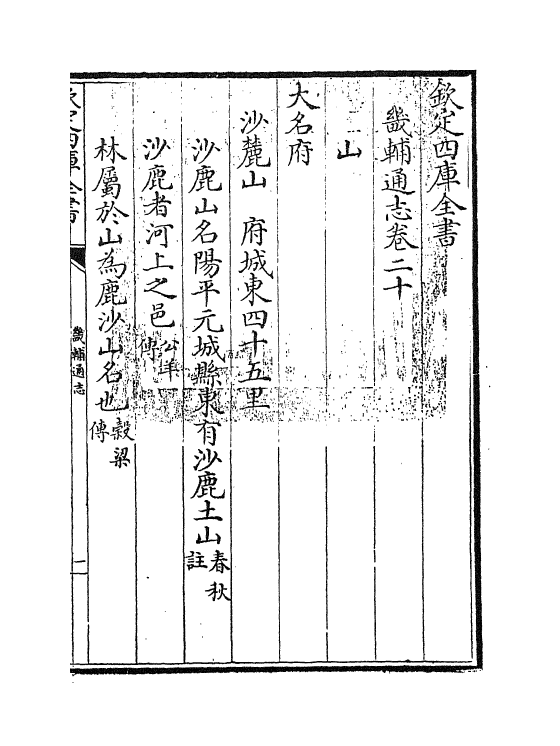 欽定四庫全書
畿輔通志卷二十
山
大名府
沙麓山　府城東四十五里
沙鹿山名陽平元城縣東有沙鹿土山春秋註
沙鹿者河上之邑公羊傳
林屬於山為鹿沙山名也穀梁傳
欽定四庫全書
畿輔通志
一